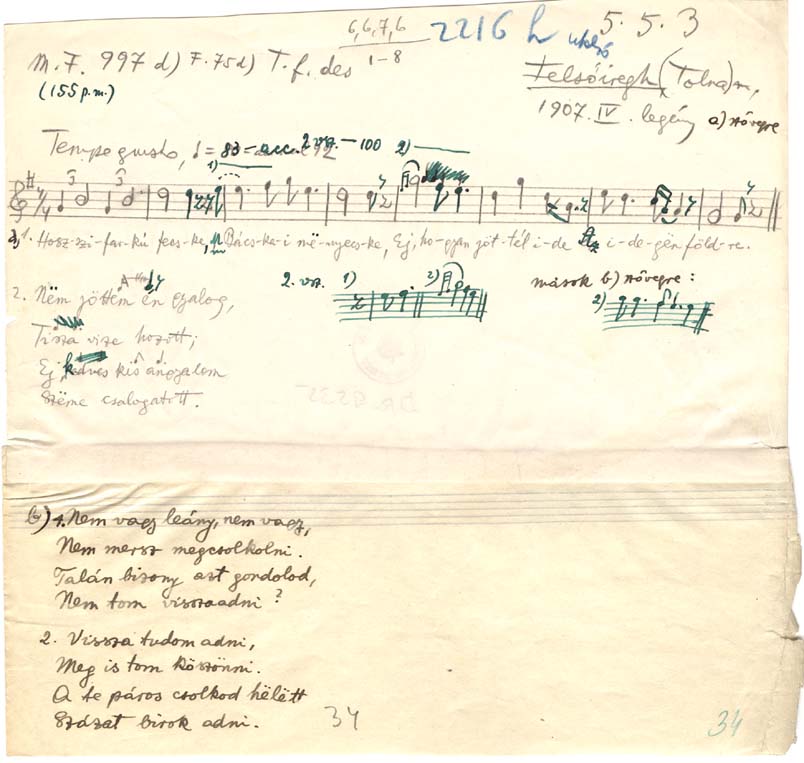 6,6,7,6
1–8
2216 h
utolsó
5. 5. 3
M.F. 997 d) F. 75d) T. f. des
(155 p.m.)
Felsőiregh (Tolna) m,
1907. IV. legény a) szövegre
Tempo giusto, ♩ = 83 – acc. 2. vsz. – 100 2)
1)
3 3
a, 1. Hosz-szi-far-kú fecs-ke, Bács-ka-i më-nyecs-ke, Ej, ho-gyan jöt-tél i-de Az i-de-gën föld-re.
2. vsz. 1) 2)
mások b) szövegre:
2)
2. Nëm jöttem én gyalog,
Tisza vize hozott;
Ej, kedves kis angyalom
Szëme csalogatott.
b) 1. Nem vagy leány, nem vagy,
Nem mersz megcsolkolni.
Talán bizony azt gondolod,
Nem tom visszaadni?
2. Vissza tudom adni,
Meg is tom köszönni.
A te páros csolkod hëlëtt
Százat birok adni.
34
34